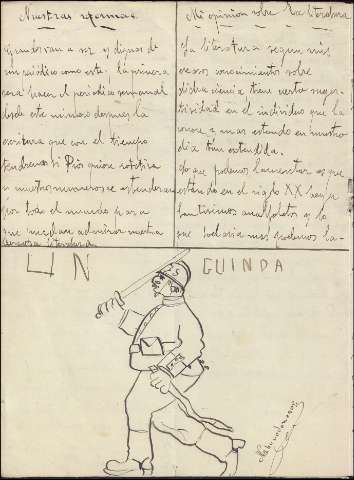 Nuestras reformas
Grandes van a ser y dignas de
un periódico como este. La primera
será hacer el periodico semanal
desde este numero despues la
escritura que con el tiempo
tendremos si Dios quiere rotativa
y nuestros numeros se extenderan
por todo el mundo para
que puedan admirar nuestra
literaria
Mi opinion sobre la literatura
La literatura segun mis
escasos conocimientos sobre
dicha ciencia tiene cierta
en el individuo que la
conoce y mas estando en nuestro
dia tan extendida.
Lo que podemos lamentar es que
estando en el siglo XX haya
tantisimos analfabetos y lo
que todavia mas podemos la-
UN GUINDA